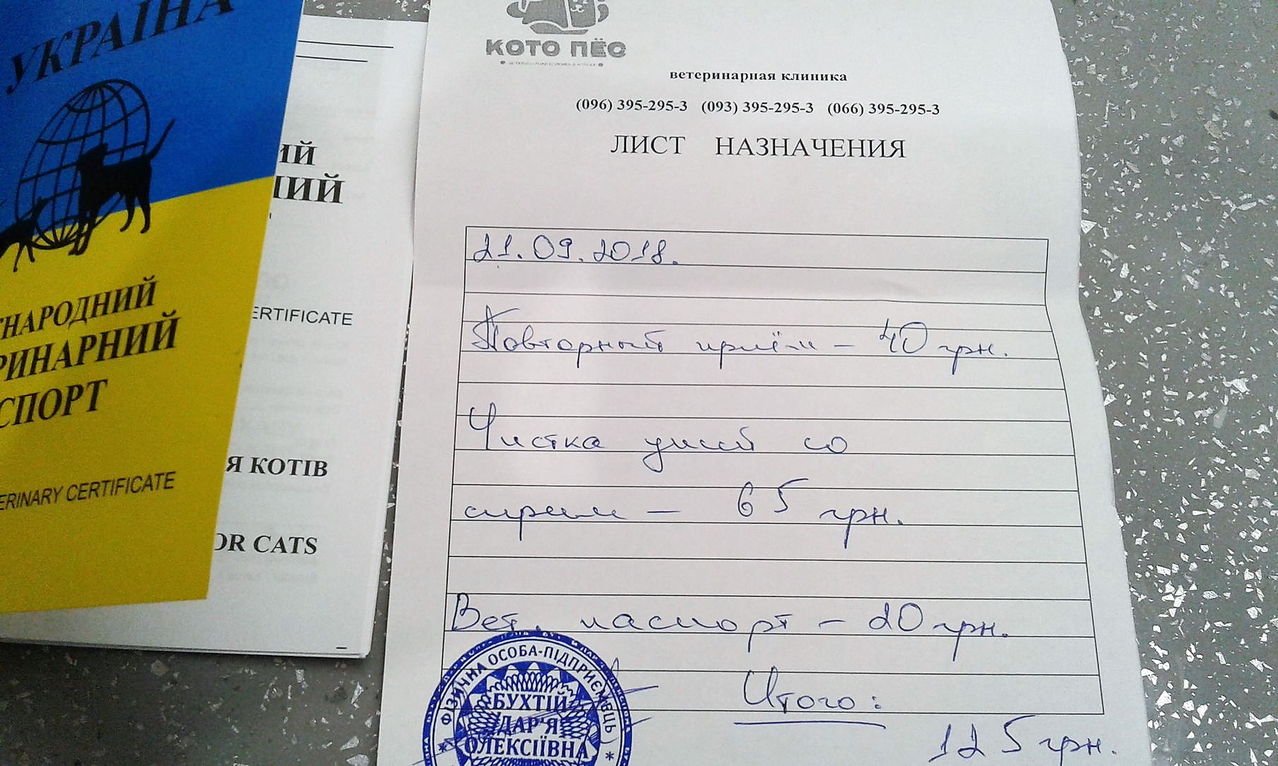 УКРАЇНА
НАРОДНИЙ
РИНАРНИЙ
СПОРТ
ERINARY CERTIFICATE
ИЙ
НИЙ
ERTIFICATE
Я КОТІВ
OR CATS
КОТО ПЁС
ветеринарная клиника
(096) 395-295-3 (093) 395-295-3 (066) 395-295-3
ЛИСТ НАЗНАЧЕНИЯ
21.09.2018.
Повторный приём – 40 грн.
Чистка ушей со
спреем – 65 грн.
Вет. паспорт – 20 грн.
Итого:
125 грн.
ФІЗИЧНА ОСОБА-ПІДПРИЄМЕЦЬ
БУХТІЙ
ДАР'Я
ОЛЕКСІЇВНА